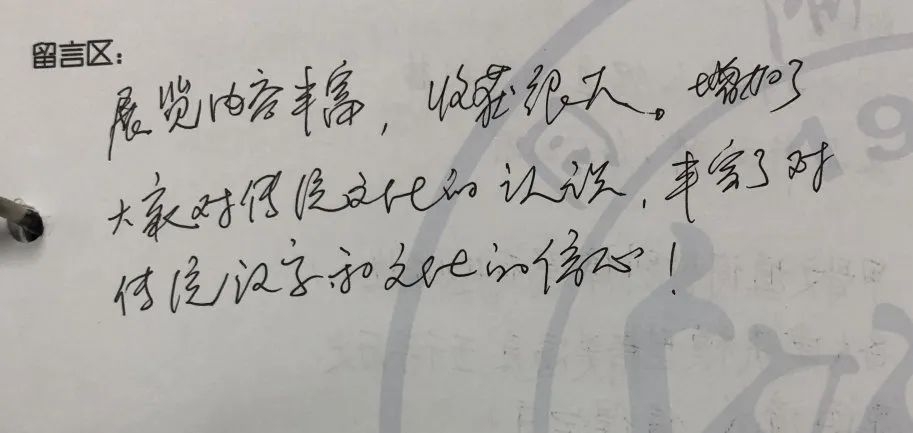 留言区：
展览内容丰富，收获很大。增加了
大家对传统文化的认识，丰富了对
传统汉字和文化的信心！
19